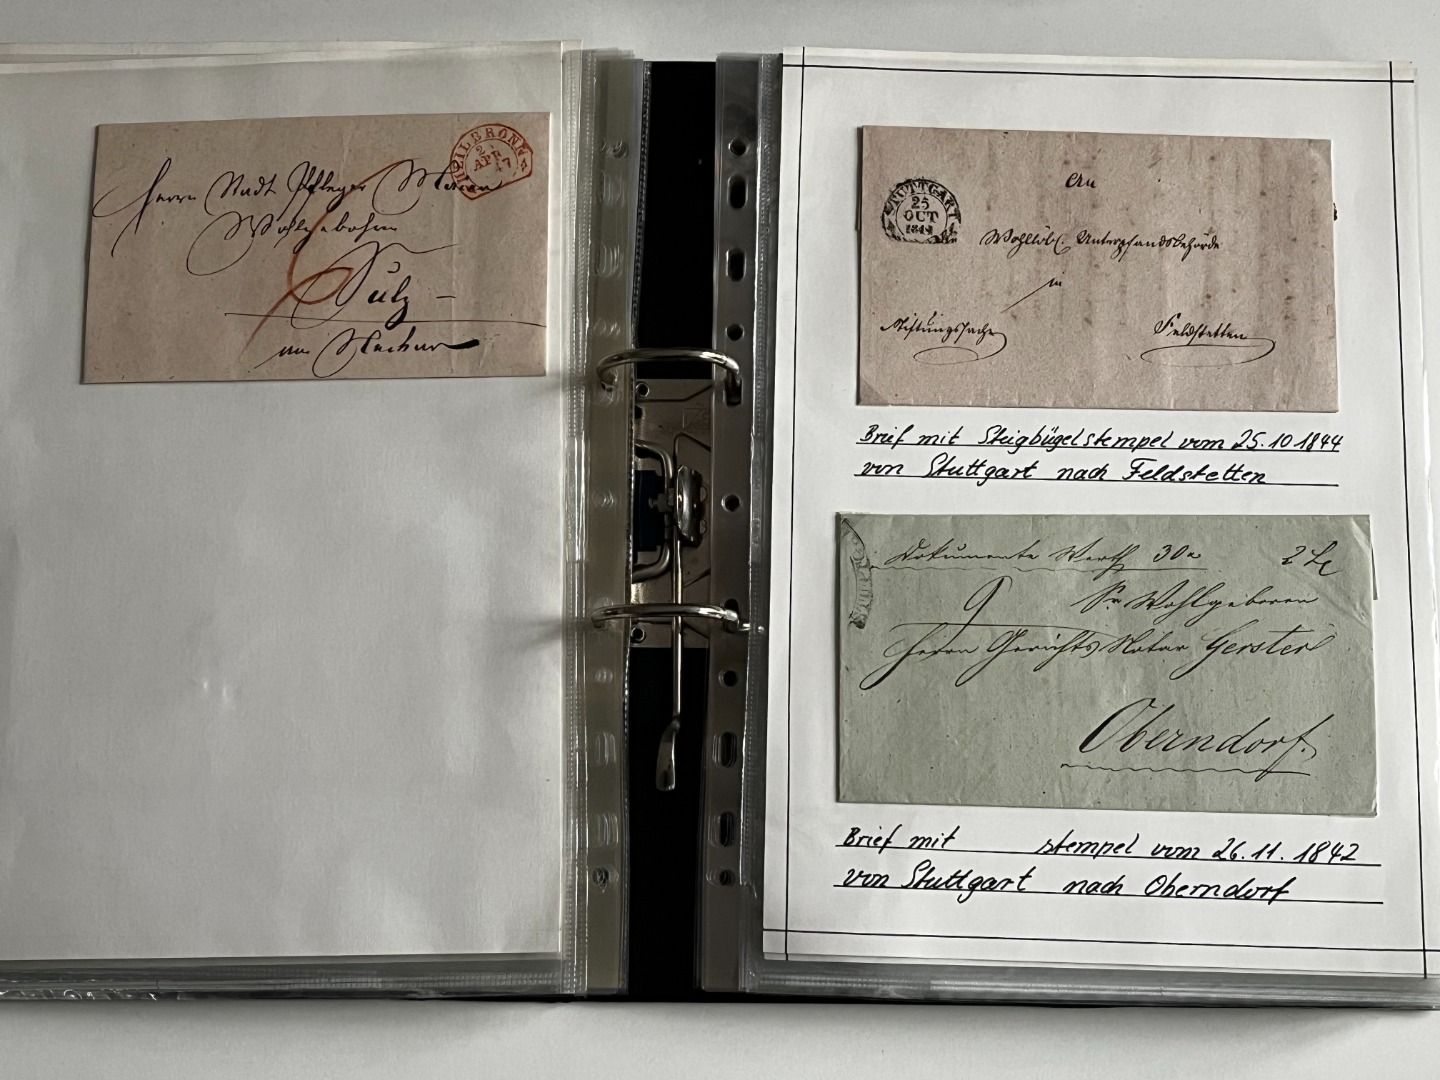 HEILBRONN
APR
47
Herrn Stadt Pfleger
Wohlgeboren
Sulz
am Neckar
STUTTGART
25
OCT
1844
An
Wohllöbl. Unterpfandsbehörde
in
Stiftungssache
Feldstetten
Brief mit Steigbügelstempel vom 25.10.1844
von Stuttgart nach Feldstetten
Dokumente Werth 30
9
Sr. Wohlgeboren
Herrn Gerichts Notar Gerster
Oberndorf.
Brief mit stempel vom 26.11.1842
von Stuttgart nach Oberndorf